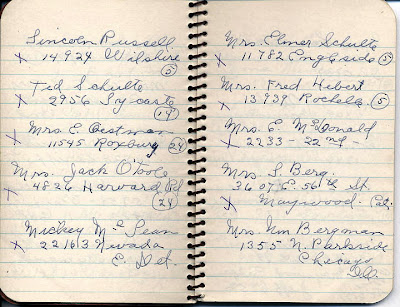 Lincoln Russell
X 14924 Wilshire
5
Ted Schulte
X 2956 Sycaste
14
Mrs E. Oestman
X 11545 Roxbury 24
Mrs. Jack O'toole
X 4826 Harvard Rd
24
Mickey Mc Lean
X 22163 Nevada
E. Det.
Mrs. Elmer Schulte
X 11782 Engleside 5
Mrs. Fred Hebert
X 13939 Rochelle 5
Mrs. E. McDonald
X 2233 - 22nd -
Mrs. L. Berg.
3607 E. 56th St.
X Maywood. Cal.
Mrs. Wm Bergman
X 1355 N. Parkside
Chicago
Ill.